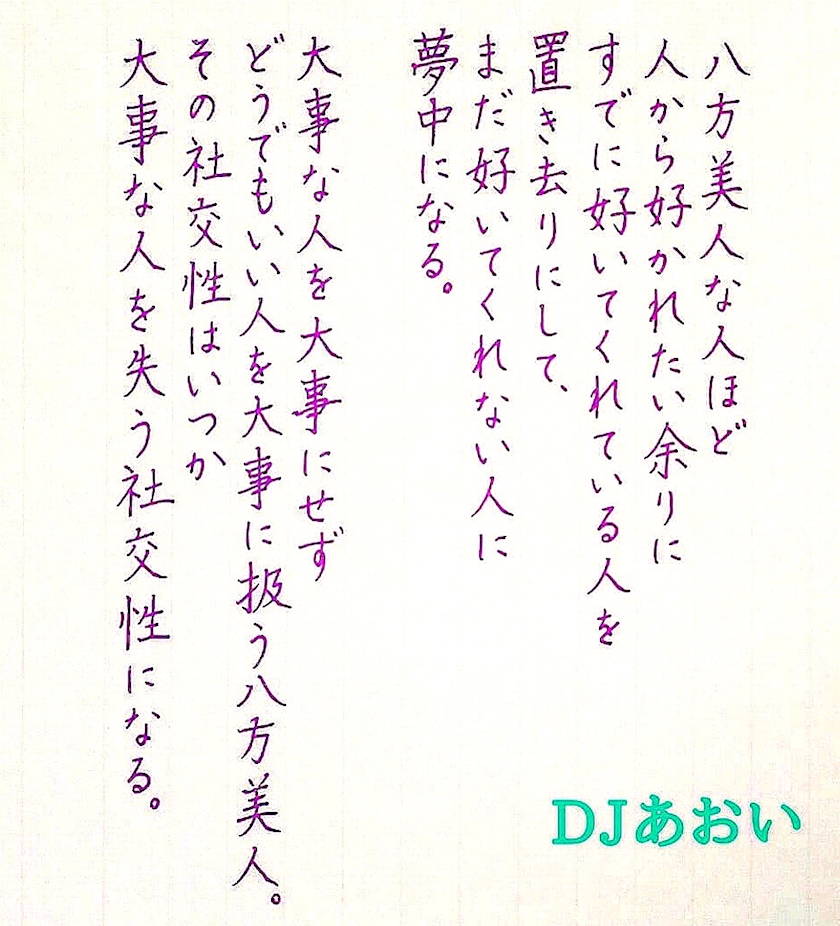 八方美人な人ほど
人から好かれたい余りに
すでに好いてくれている人を
置き去りにして、
まだ好いてくれない人に
夢中になる。
大事な人を大事にせず
どうでもいい人を大事に扱う八方美人。
その社交性はいつか
大事な人を失う社交性になる。
DJあおい